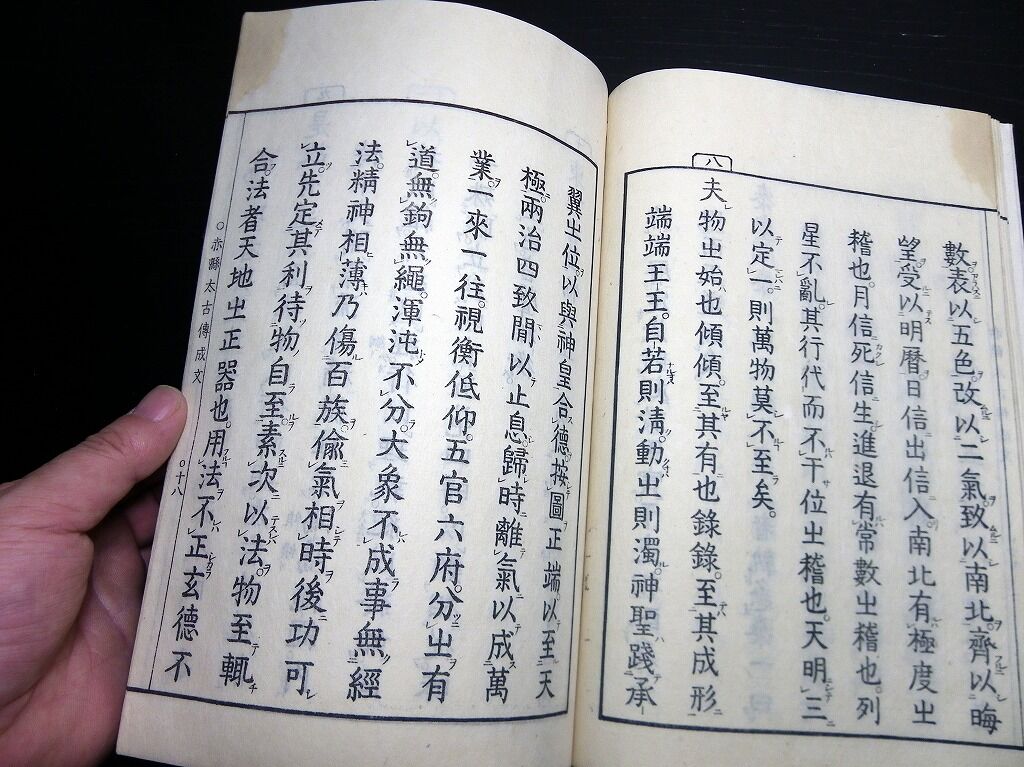 八
數表以五色。改以二氣致以南北。齊以晦
望受以明曆日信出信入。南北有極度㞢
稽也。月信死信生進退有常數㞢稽也。列
星不亂。其行代而不干位㞢稽也。天明三
以定一。則萬物莫不至矣。
夫物㞢始也傾傾。至其有也錄錄。至其成形
端端王王。自若則淸。動㞢則濁。神聖踐承
翼㞢位。以與神皇合德。按圖正端以至天
極。兩治四致閒以止息。歸時離氣以成萬
業。一來一往。視衡低仰。五官六府。分㞢有
道。無鉤無繩。渾沌不分。大象不成。事無經
法。精神相薄乃傷百族。偷氣相時後功可
立。先定其利待物自至。素次以法。物至輒
合。法者天地㞢正器也。用法不正玄德不
○赤縣太古傳成文 ○十八